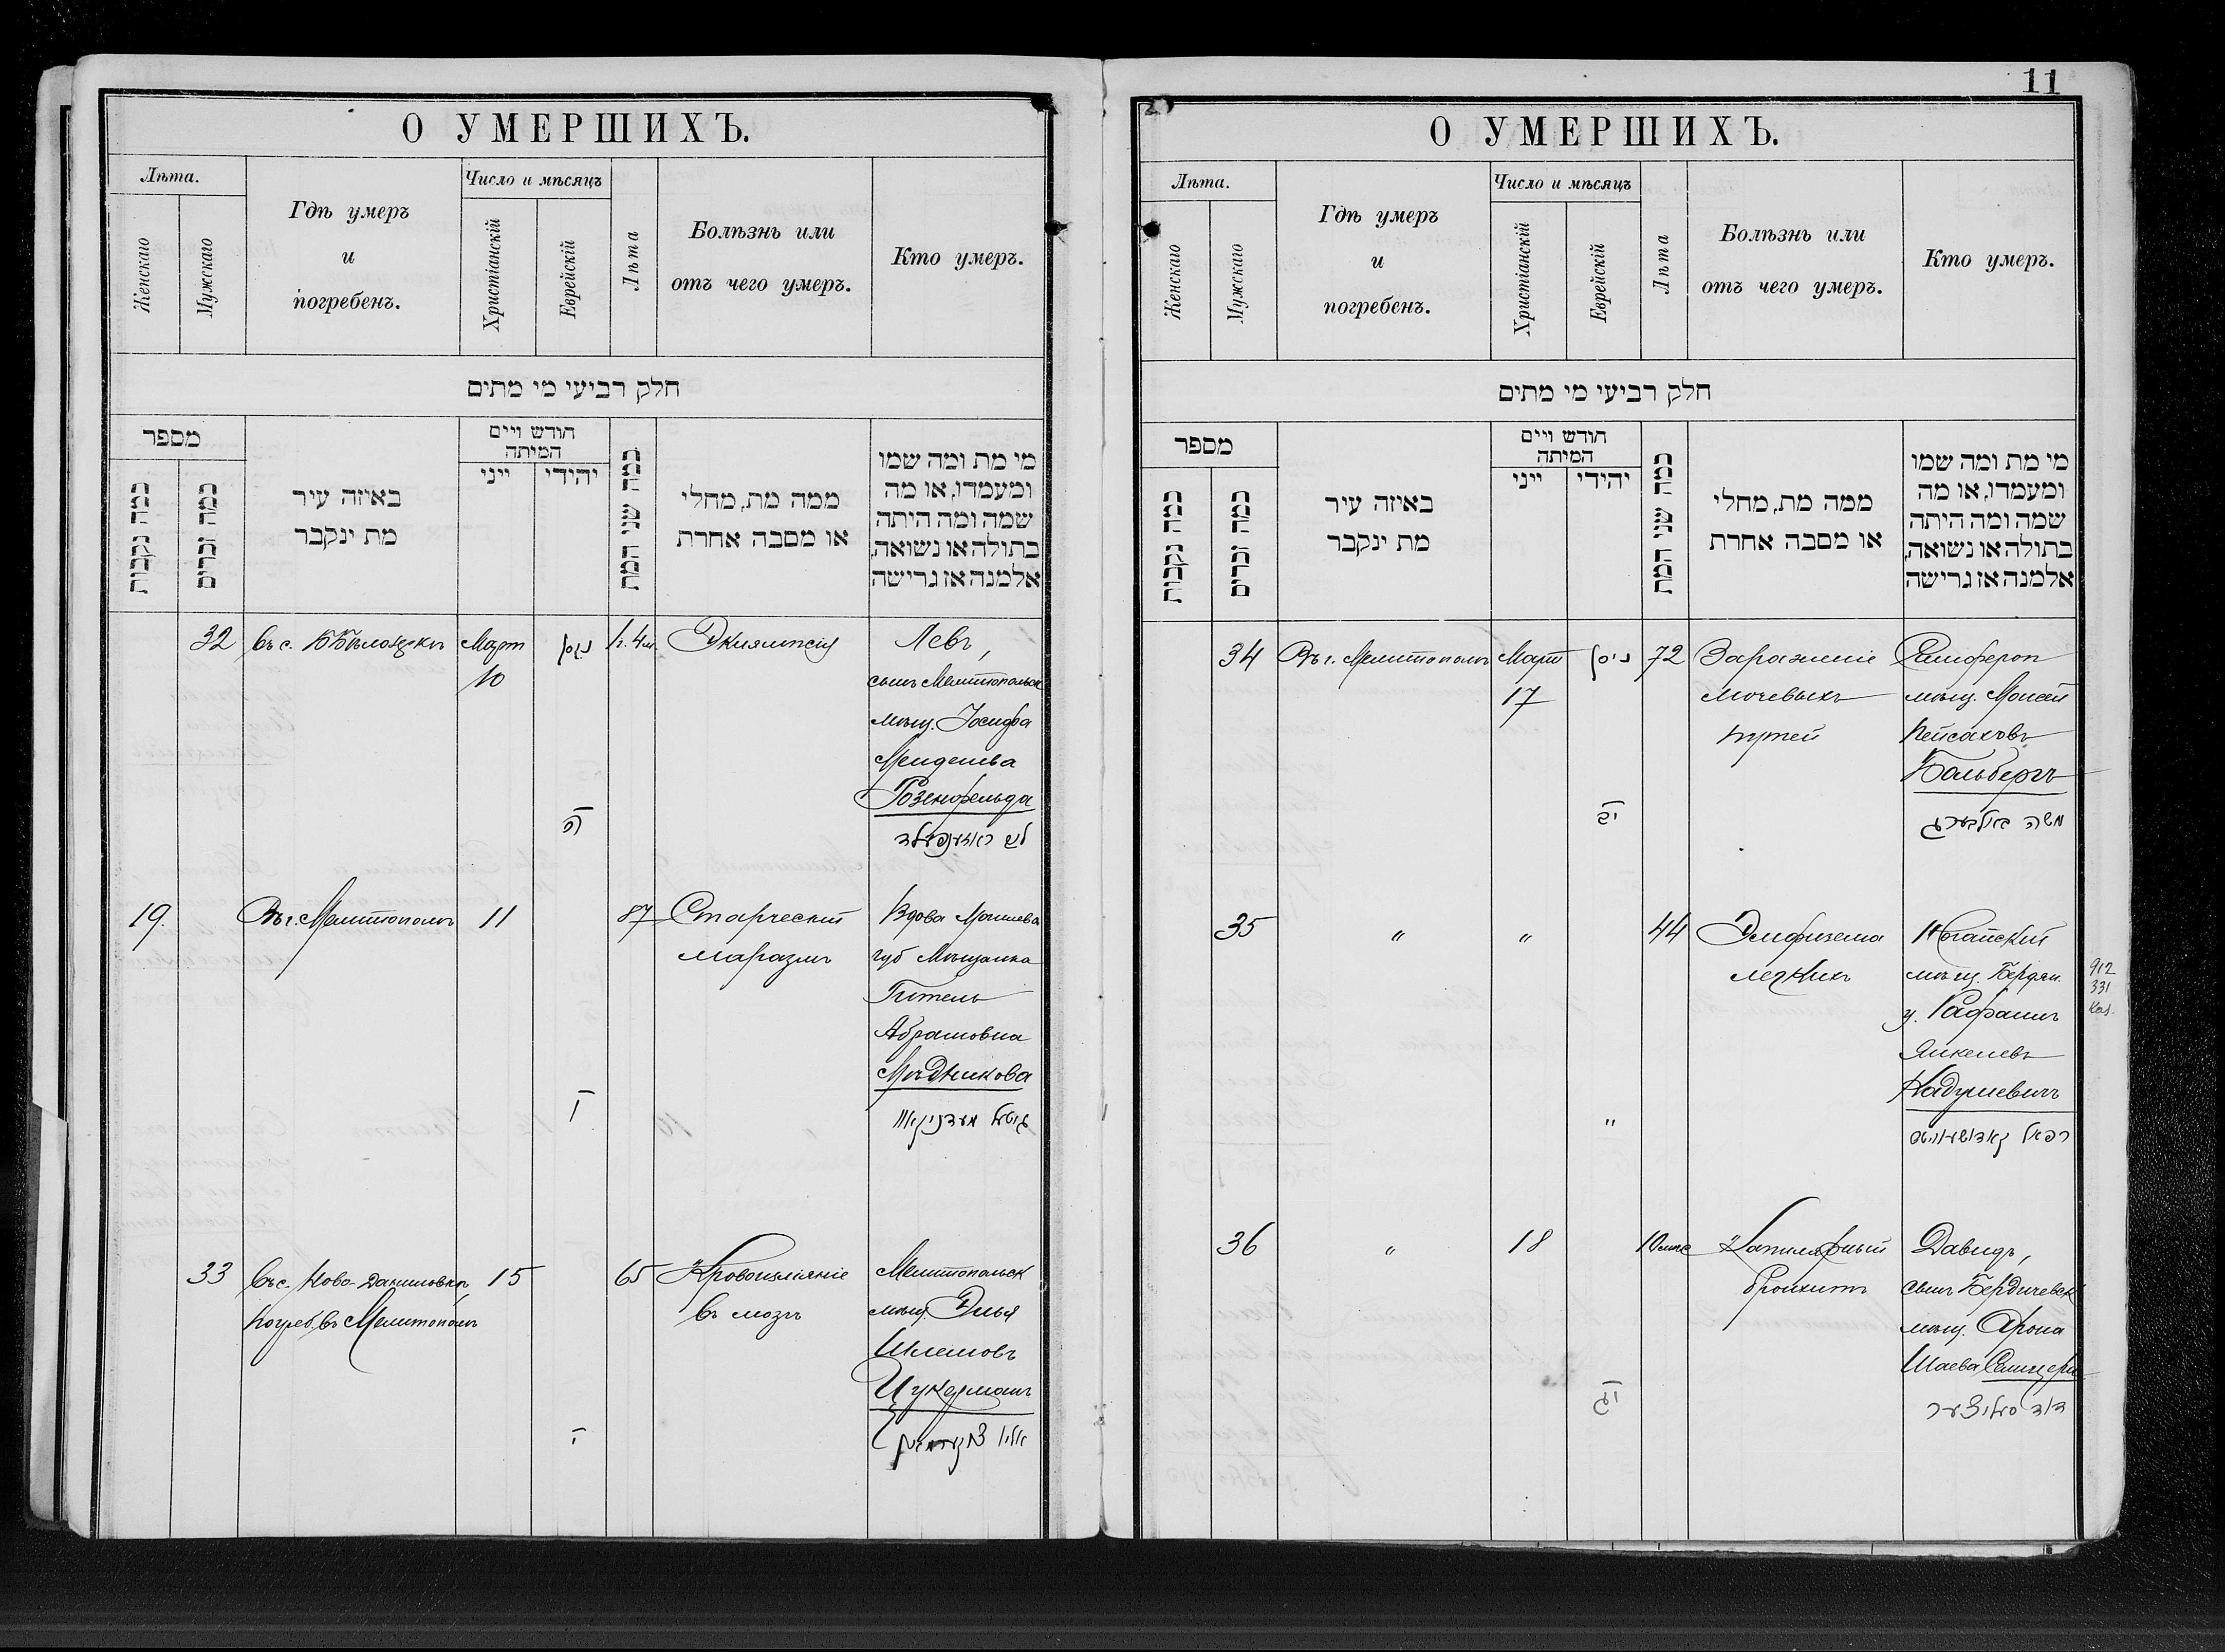 О УМЕРШИХЪ.
Лѣта.
Женскаго
Мужскаго
Гдѣ умеръ
и
погребенъ.
Число и мѣсяцъ
Христіанскій
Еврейскій
Лѣта
Болѣзнь или
отъ чего умеръ.
Кто умеръ.
חלק רביעי מי מתים
מספר
כמה נקבות
כמה זכרים
באיזה עיר
מת ינקבר
חודש ויים
המיתה
ייני
יהודי
כמה שני המת
ממה מת, מחלי
או מסבה אחרת
מי מת ומה שמו
ומעמדו, או מה
שמה ומה היתה
בתולה או נשואה,
אלמנה אז גרישה
32
въ с.
Март
10
ניסן
1г. 4м.
Эклямпсія
Левъ,
сынъ Мелитопольск
мѣщ. Іосифа
Менделева
Розенфельда
לעב ראזענפעלד
19.
Въ г. Мелитополѣ
11
87
Старческій
маразмъ
Вдова Могилевс
губ Мѣщанка
Гитель
Абрамовна
Мѣдникова
גיטעל מעדניקאוו
33
въ с. Ново-Даниловкѣ,
погреб. въ Мелитополѣ
15
י
65
Кровоизліяніе
въ мозгъ
Мелитопольск
мѣщ. Элья
Шлемовъ
Цукерманъ
אליי צוקערמאן
11
О УМЕРШИХЪ.
Лѣта.
Женскаго
Мужскаго
Гдѣ умеръ
и
погребенъ.
Число и мѣсяцъ
Христіанскій
Еврейскій
Лѣта
Болѣзнь или
отъ чего умеръ.
Кто умеръ.
חלק רביעי מי מתים
מספר
כמה נקבות
כמה זכרים
באיזה עיר
מת ינקבר
חודש ויים
המיתה
ייני
יהודי
כמה שני המת
ממה מת, מחלי
או מסבה אחרת
מי מת ומה שמו
ומעמדו, או מה
שמה ומה היתה
בתולה או נשואה,
אלמנה אז גרישה
34
Въ г. Мелитополѣ
Март
17
ניסן
יב
72
Зараженіе
мочевыхъ
путей
Симфероп
мѣщ. Мовшай
Пейсаховъ
Больбергъ
משה באלבערג
35
"
"
"
44
Эмфизема
легкихъ
Ногайскій
мѣщ. Бердян.
у. Рафаилъ
Янкелевъ
Кадушевичъ
רפאל קאדושעוויטש
912
331
Kas.
36
"
18
יג
10 мѣс
Капилярный
бронхитъ
Давидъ,
сынъ Бердичевск
мѣщ. Арона
Шаева Селицера
דוד סעליצער